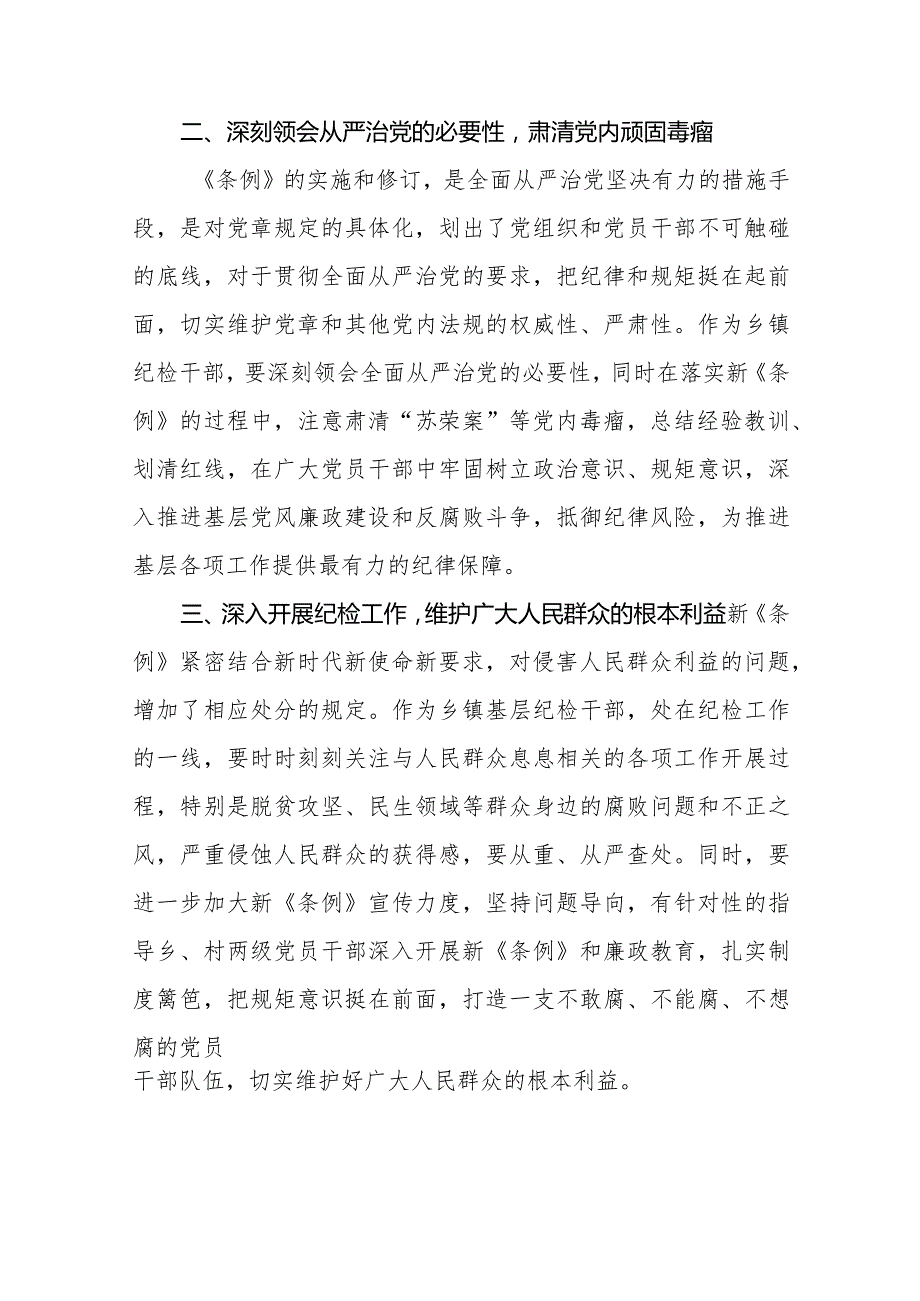 二、深刻领会从严治党的必要性，肃清党内顽固毒瘤
《条例》的实施和修订，是全面从严治党坚决有力的措施手
段，是对党章规定的具体化，划出了党组织和党员干部不可触碰
的底线，对于贯彻全面从严治党的要求，把纪律和规矩挺在起前
面，切实维护党章和其他党内法规的权威性、严肃性。作为乡镇
纪检干部，要深刻领会全面从严治党的必要性，同时在落实新《条
例》的过程中，注意肃清“苏荣案”等党内毒瘤，总结经验教训、
划清红线，在广大党员干部中牢固树立政治意识、规矩意识，深
入推进基层党风廉政建设和反腐败斗争，抵御纪律风险，为推进
基层各项工作提供最有力的纪律保障。
三、深入开展纪检工作，维护广大人民群众的根本利益新《条
例》紧密结合新时代新使命新要求，对侵害人民群众利益的问题，
增加了相应处分的规定。作为乡镇基层纪检干部，处在纪检工作
的一线，要时时刻刻关注与人民群众息息相关的各项工作开展过
程，特别是脱贫攻坚、民生领域等群众身边的腐败问题和不正之
风，严重侵蚀人民群众的获得感，要从重、从严查处。同时，要
进一步加大新《条例》宣传力度，坚持问题导向，有针对性的指
导乡、村两级党员干部深入开展新《条例》和廉政教育，扎实制
度篱笆，把规矩意识挺在前面，打造一支不敢腐、不能腐、不想
腐的党员
干部队伍，切实维护好广大人民群众的根本利益。